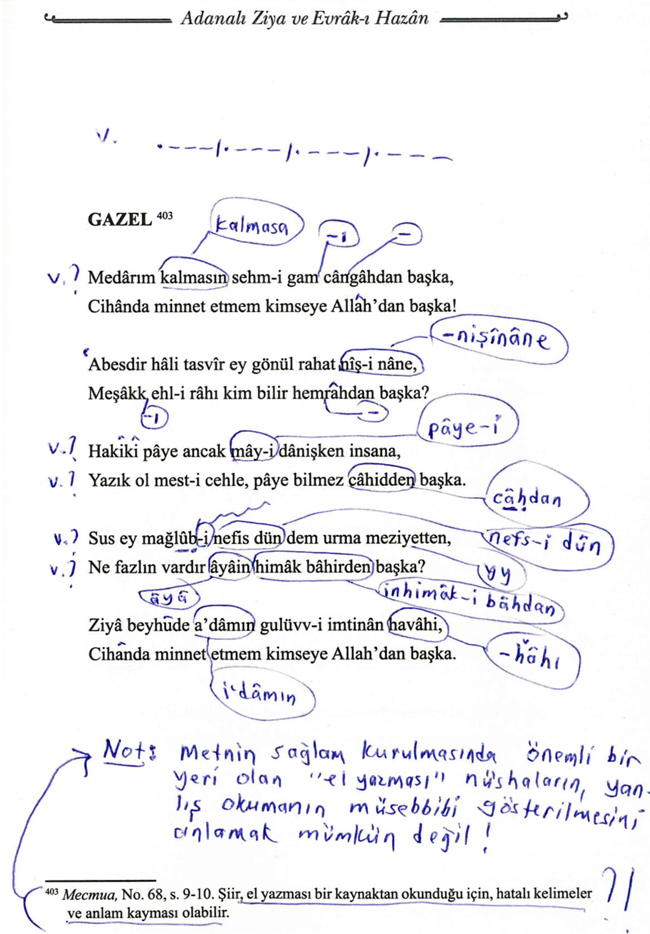 Adanalı Ziya ve Evrâk-ı Hazân
v.
. - - - / . - - - / . - - - / . - - -
GAZEL 403
kalmasa
-i
-
v.? Medârım kalmasın sehm-i gam cângâhdan başka,
Cihânda minnet etmem kimseye Allâh'dan başka!
-nişînâne
Abesdir hâli tasvîr ey gönül rahat nîş-i nâne,
Meşâkk ehl-i râhı kim bilir hemrâhdan başka?
-ı
-
pâye-i
v.? Hakîkî pâye ancak mây-i dânişken insana,
v.? Yazık ol mest-i cehle, pâye bilmez câhidden başka.
câhdan
v.? Sus ey mağlûb-i nefis dün dem urma meziyetten,
nefs-i dûn
v.? Ne fazlın vardır âyâin himâk bâhirden başka?
yy
âyâ
inhimâk-i bâhdan
Ziyâ beyhûde a'dâmın gulüvv-i imtinân havâhi,
-hâhı
Cihânda minnet etmem kimseye Allah'dan başka.
i'dâmın
Not: Metnin sağlam kurulmasında önemli bir
yeri olan "el yazması" nüshaların, yan-
lış okumanın müsebbibi gösterilmesini
anlamak mümkün değil!
403 Mecmua, No. 68, s. 9-10. Şiir, el yazması bir kaynaktan okunduğu için, hatalı kelimeler
ve anlam kayması olabilir.
?!